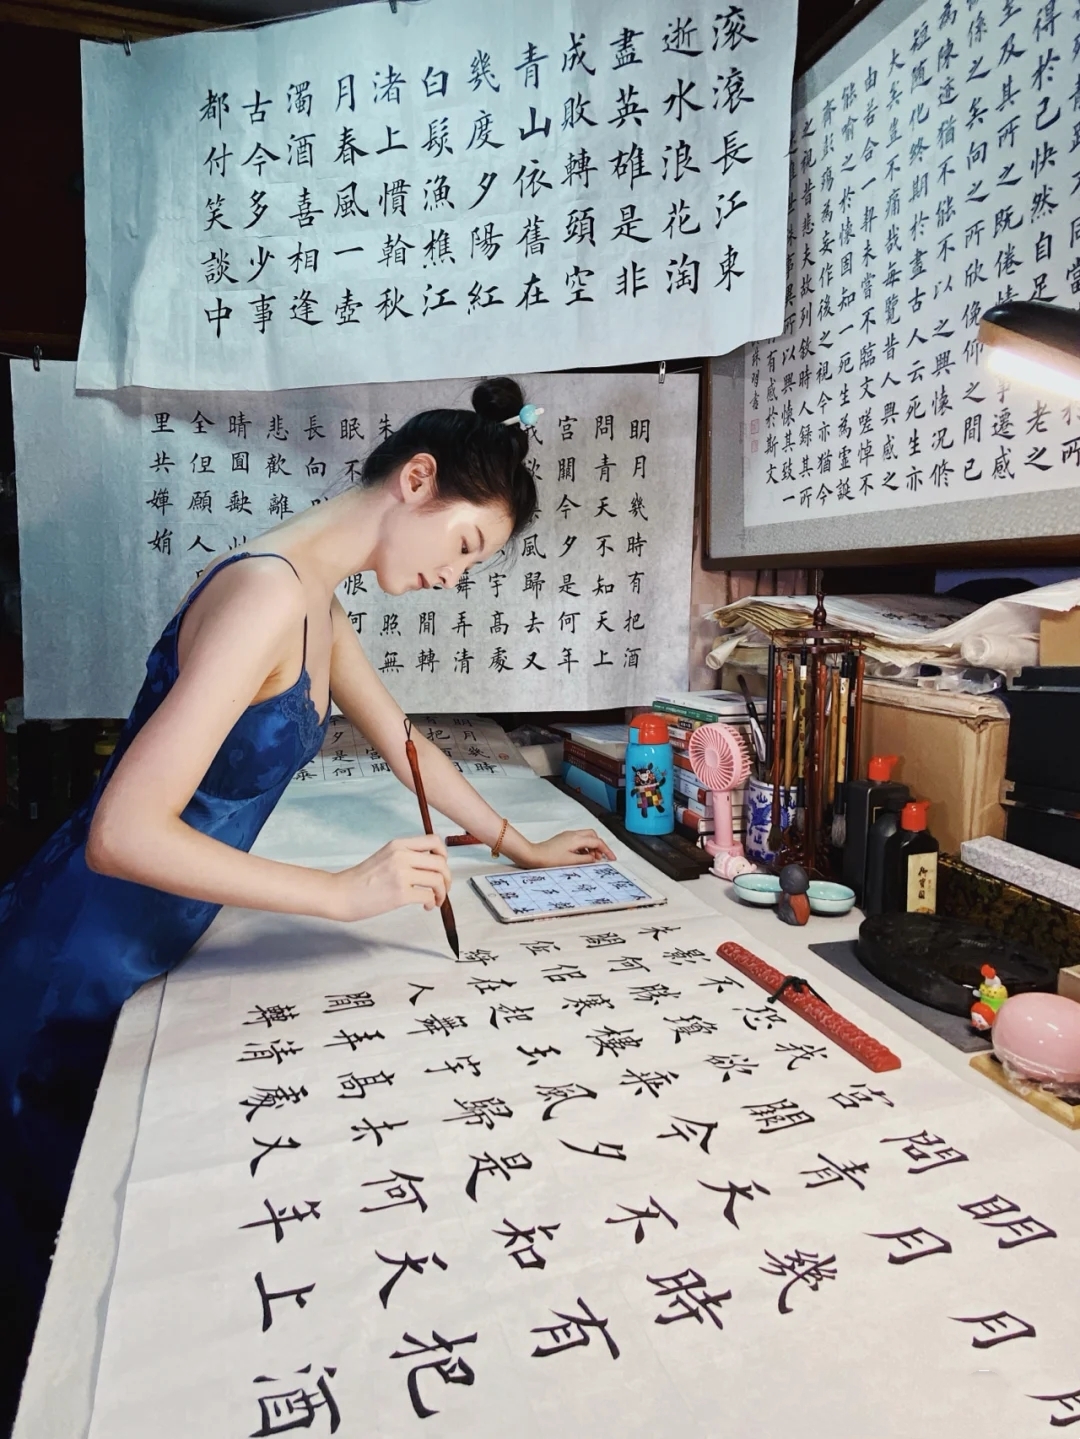 滾滾長江東
逝水浪花淘
盡英雄是非
成敗轉頭空
青山依舊在
幾度夕陽紅
白髮漁樵江
渚上慣翰秋
月春風一壺
濁酒喜相逢
古今多少事
都付笑談中
得於己快然自足 老之
及其所之既倦情 事遷感
係之矣向之所欣俛仰之間已
為陳迹猶不能不以之興懷況修
短随化終期於盡古人云死生亦
大矣豈不痛哉每覽昔人興感之
由若合一契未嘗不臨文嗟悼不
能喻之於懷固知一死生為虛誕
齊彭殤為妄作後之視今亦猶今
之視昔悲夫故列敘時人錄其所
所以興懷其致一
有感於斯文
明月幾時有把酒
問青天不知天上
宮闕今夕是何年
我欲 風歸去又
宇高處
舞弄清
閒轉
朱 照無
眠不 恨何
長向
悲歡離
晴圓缺
全但願人
里共嬋娟
明月幾時有把酒
問青天不知天上
宮闕今夕是何年
我欲乘風歸去又
恐瓊樓玉宇高處
不勝寒起舞弄清
影何侣在人間轉
朱閣低綺